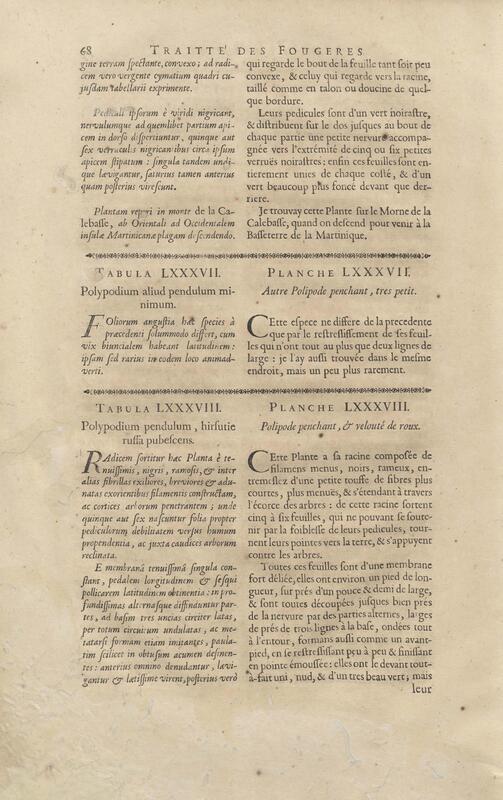 68 TRAITTE' DES FOUGERES
gine terram spectante, convexo; ad radi-
cem vero vergente cymatium quadri cu-
jusdam tabellarii exprimente.
Pediculi ipsorum è viridi nigricant,
nervulumque ad quemlibet partium api-
cem in dorso disperiuntur, quinque aut
sex verruculis nigricantibus circa ipsum
apicem stipatum : singula tandem undi-
que lævigantur, saturius tamen anterius
quam posterius virescunt.
Plantam reperi in monte de la Ca-
lebasse, ab Orientali ad Occidentalem
insulæ Martinicanæ plagam descendendo.
qui regarde le bout de la feuille tant soit peu
convexe, & celuy qui regarde vers la racine,
taillé comme en talon ou doucine de quel-
que bordure.
Leurs pedicules sont d'un vert noirastre,
& distribuent sur le dos jusques au bout de
chaque partie une petite nervure accompa-
gnée vers l'extrémité de cinq ou six petites
verruës noirastres : enfin ces feuilles sont en-
tierement unies de chaque costé, & d'un
vert beaucoup plus foncé devant que der-
riere.
Je trouvay cette Plante sur le Morne de la
Calebasse, quand on descend pour venir à la
Basseterre de la Martinique.
TABULA LXXXVII.
Polypodium aliud pendulum mi-
nimum.
FOliorum angustia hæc species à
præcedenti solummodo differt, cum
vix biuncialem habeant latitudinem :
ipsam sed rarius in eodem loco animad-
verti.
PLANCHE LXXXVII.
Autre Polipode penchant, tres petit.
CEtte espece ne differe de la precedente
que par le restressissement de ses feuil-
les qui n'ont tout au plus que deux lignes de
large : je l'ay aussi trouvée dans le mesme
endroit, mais un peu plus rarement.
TABULA LXXXVIII.
Polypodium pendulum, hirsutie
russa pubescens.
RAdicem sortitur hæc Planta è te-
nuissimis, nigris, ramosis, & inter
alias fibrillas exiliores, breviores & adu-
natas exorientibus filamentis constructam,
ac cortices arborum penetrantem ; unde
quinque aut sex nascuntur folia propter
pediculorum debilitatem versus humum
propendentia, ac juxta caudices arborum
reclinata.
E membranâ tenuissimâ singula con-
stant, pedalem longitudinem & sesqui
pollicarem latitudinem obtinentia : in pro-
fundissimas alternasque diffinduntur par-
tes, ad basim tres uncias circiter latas,
per totum circuitum undulatas, ac me-
tatarsi formam etiam imitantes, paula-
tim scilicet in obtusum acumen desinen-
tes : anterius omnino denudantur, lævi-
gantur & lætissime virent, posterius verò
PLANCHE LXXXVIII.
Polipode penchant, & velouté de roux.
CEtte Plante a sa racine composée de
filamens menus, noirs, rameux, en-
tremeslez d'une petite touffe de fibres plus
courtes, plus menuës, & s'étendant à travers
l'écorce des arbres : de cette racine sortent
cinq à six feuilles, qui ne pouvant se soute-
nir par la foiblesse de leurs pedicules, tour-
nent leurs pointes vers la terre, & s'appuyent
contre les arbres.
Toutes ces feuilles sont d'une membrane
fort déliée, elles ont environ un pied de lon-
gueur, sur prés d'un pouce & demi de large,
& sont toutes découpées jusques bien pres
de la nervure par des parties alternes, larges
de prés de trois lignes à la base, ondées tout
à l'entour, formans aussi comme un avant-
pied, en se restressissant peu à peu & finissant
en pointe émoussée : elles ont le devant tout-
à-fait uni, nud, & d'un tres beau vert ; mais
leur